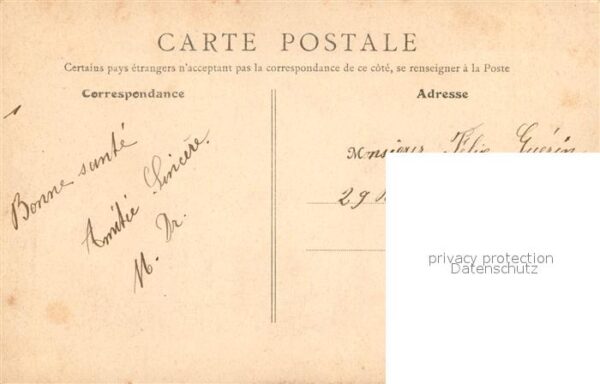 CARTE POSTALE
Certains pays étrangers n'acceptant pas la correspondance de ce côté, se renseigner à la Poste
Correspondance
Adresse
Bonne santé
Amitié Sincère.
M. Dr.
Monsieur Félix Guérin
29
privacy protection
Datenschutz